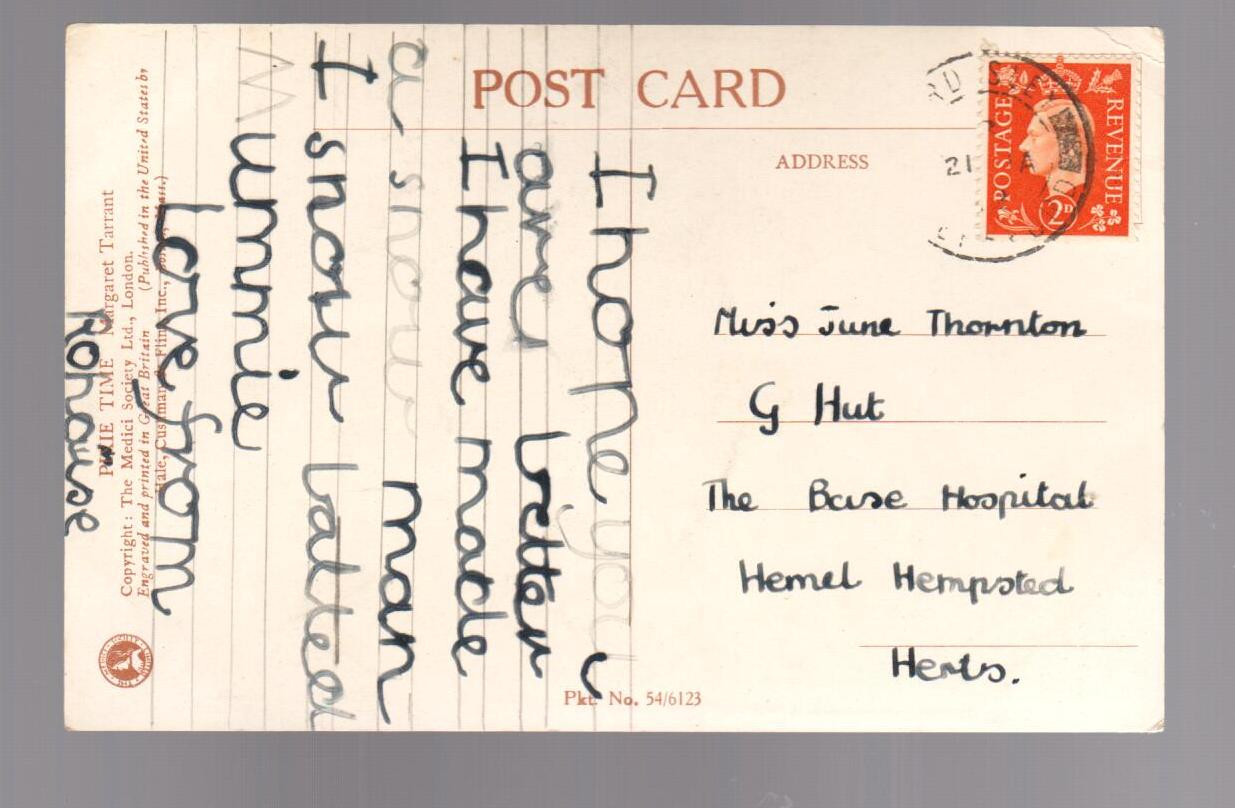 POST CARD
ADDRESS
POSTAGE
REVENUE
2D
21
Miss June Thornton
G Hut
The Base Hospital
Hemel Hempsted
Herts.
I hope you
are better
I have made
a snow man
I snow balled
unnie
Love from
Pkt. No. 54/6123
PIXIE TIME Margaret Tarrant
Copyright: The Medici Society Ltd., London.
Engraved and printed in Great Britain (Published in the United States by
Hale, Cushman & Flint, Inc.,